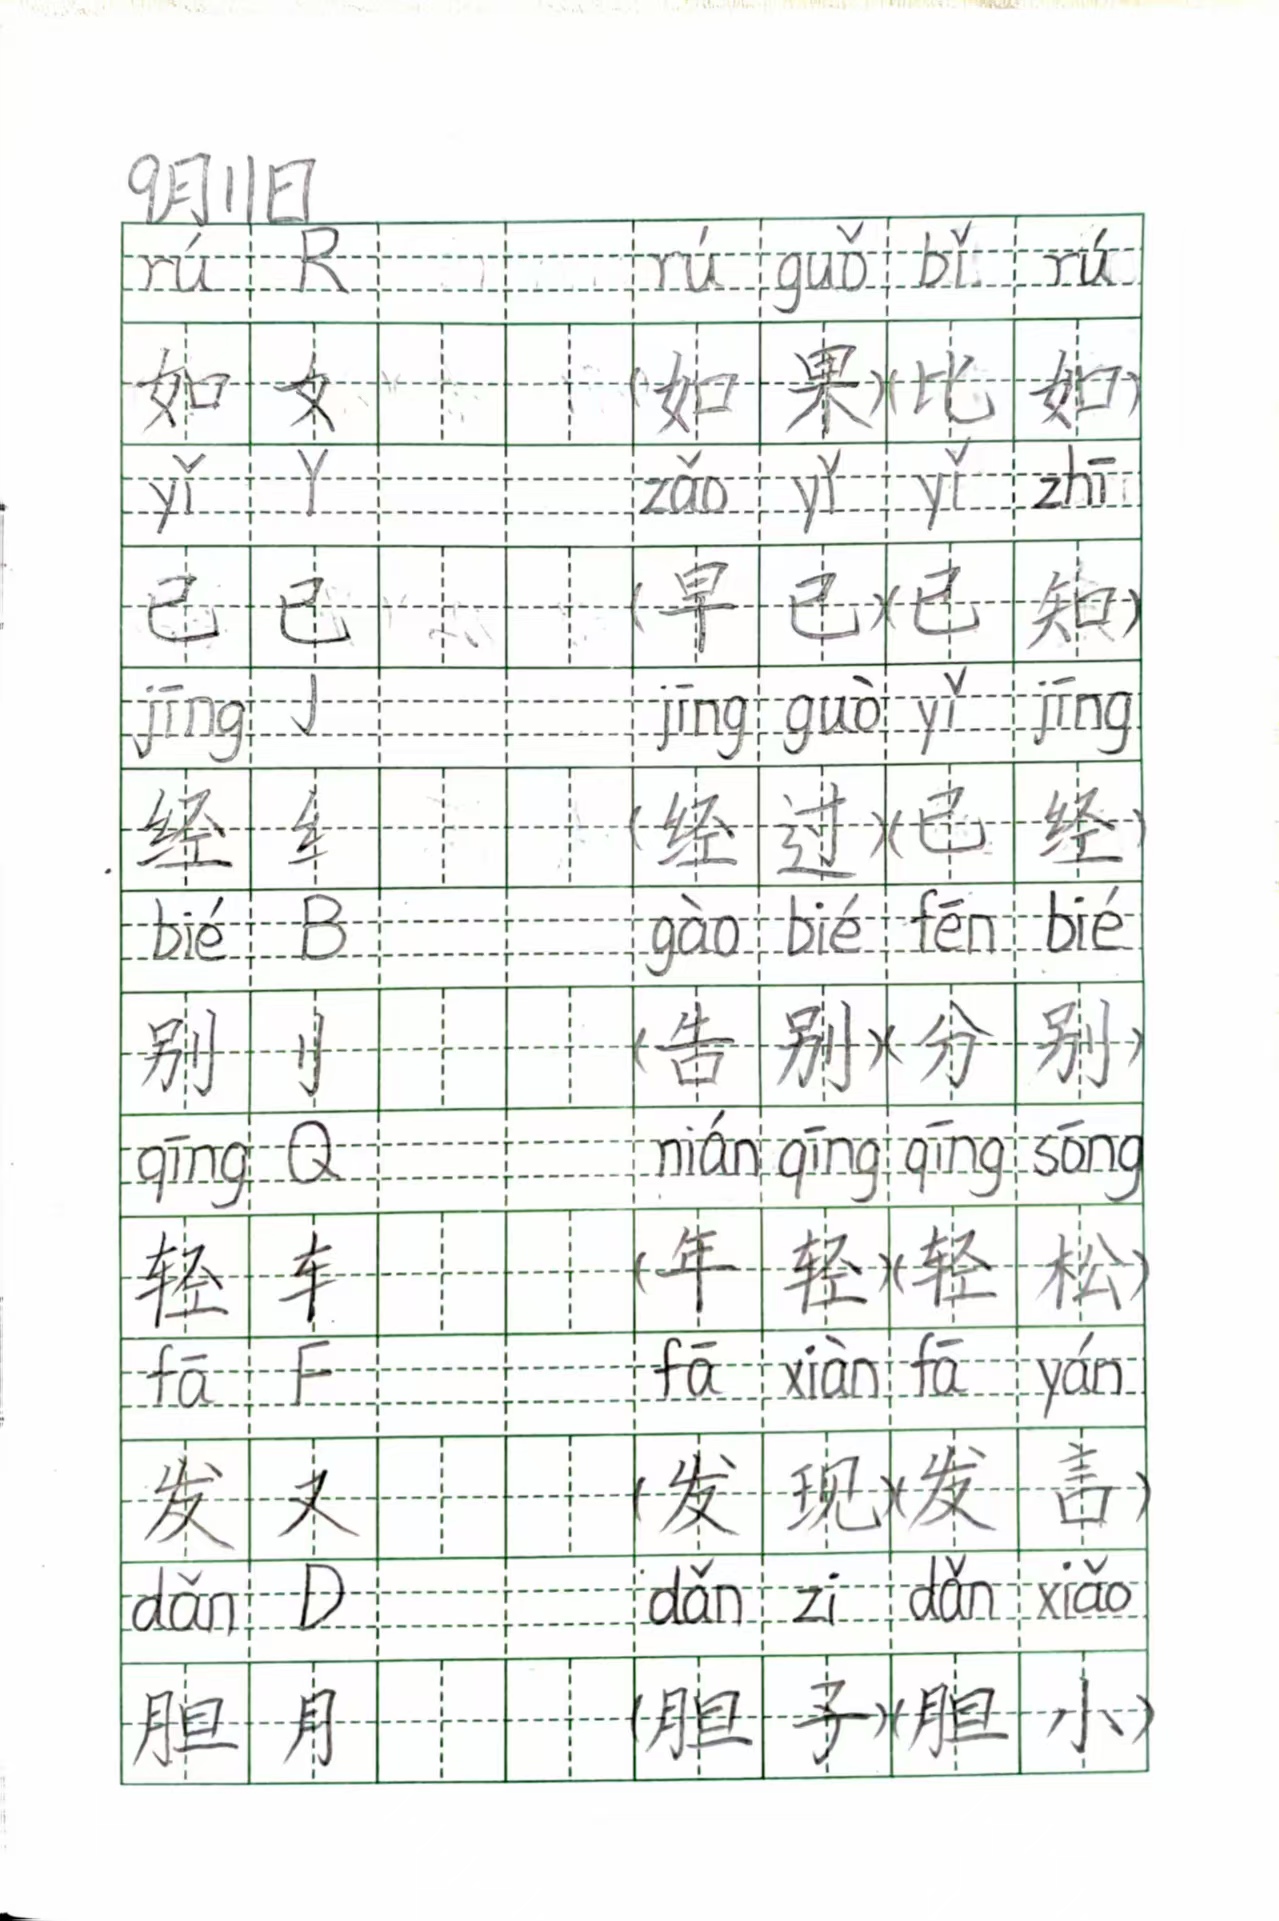 9月11日
rú R rú guǒ bǐ rú
如 女 (如果)(比如)
yǐ Y zǎo yǐ yǐ zhī
已 己 (早已)(已知)
jīng J jīng guò yǐ jīng
经 纟 (经过)(已经)
bié B gào bié fēn bié
别 刂 (告别)(分别)
qīng Q nián qīng qīng sōng
轻 车 (年轻)(轻松)
fā F fā xiàn fā yán
发 又 (发现)(发言)
dǎn D dǎn zi dǎn xiǎo
胆 月 (胆子)(胆小)